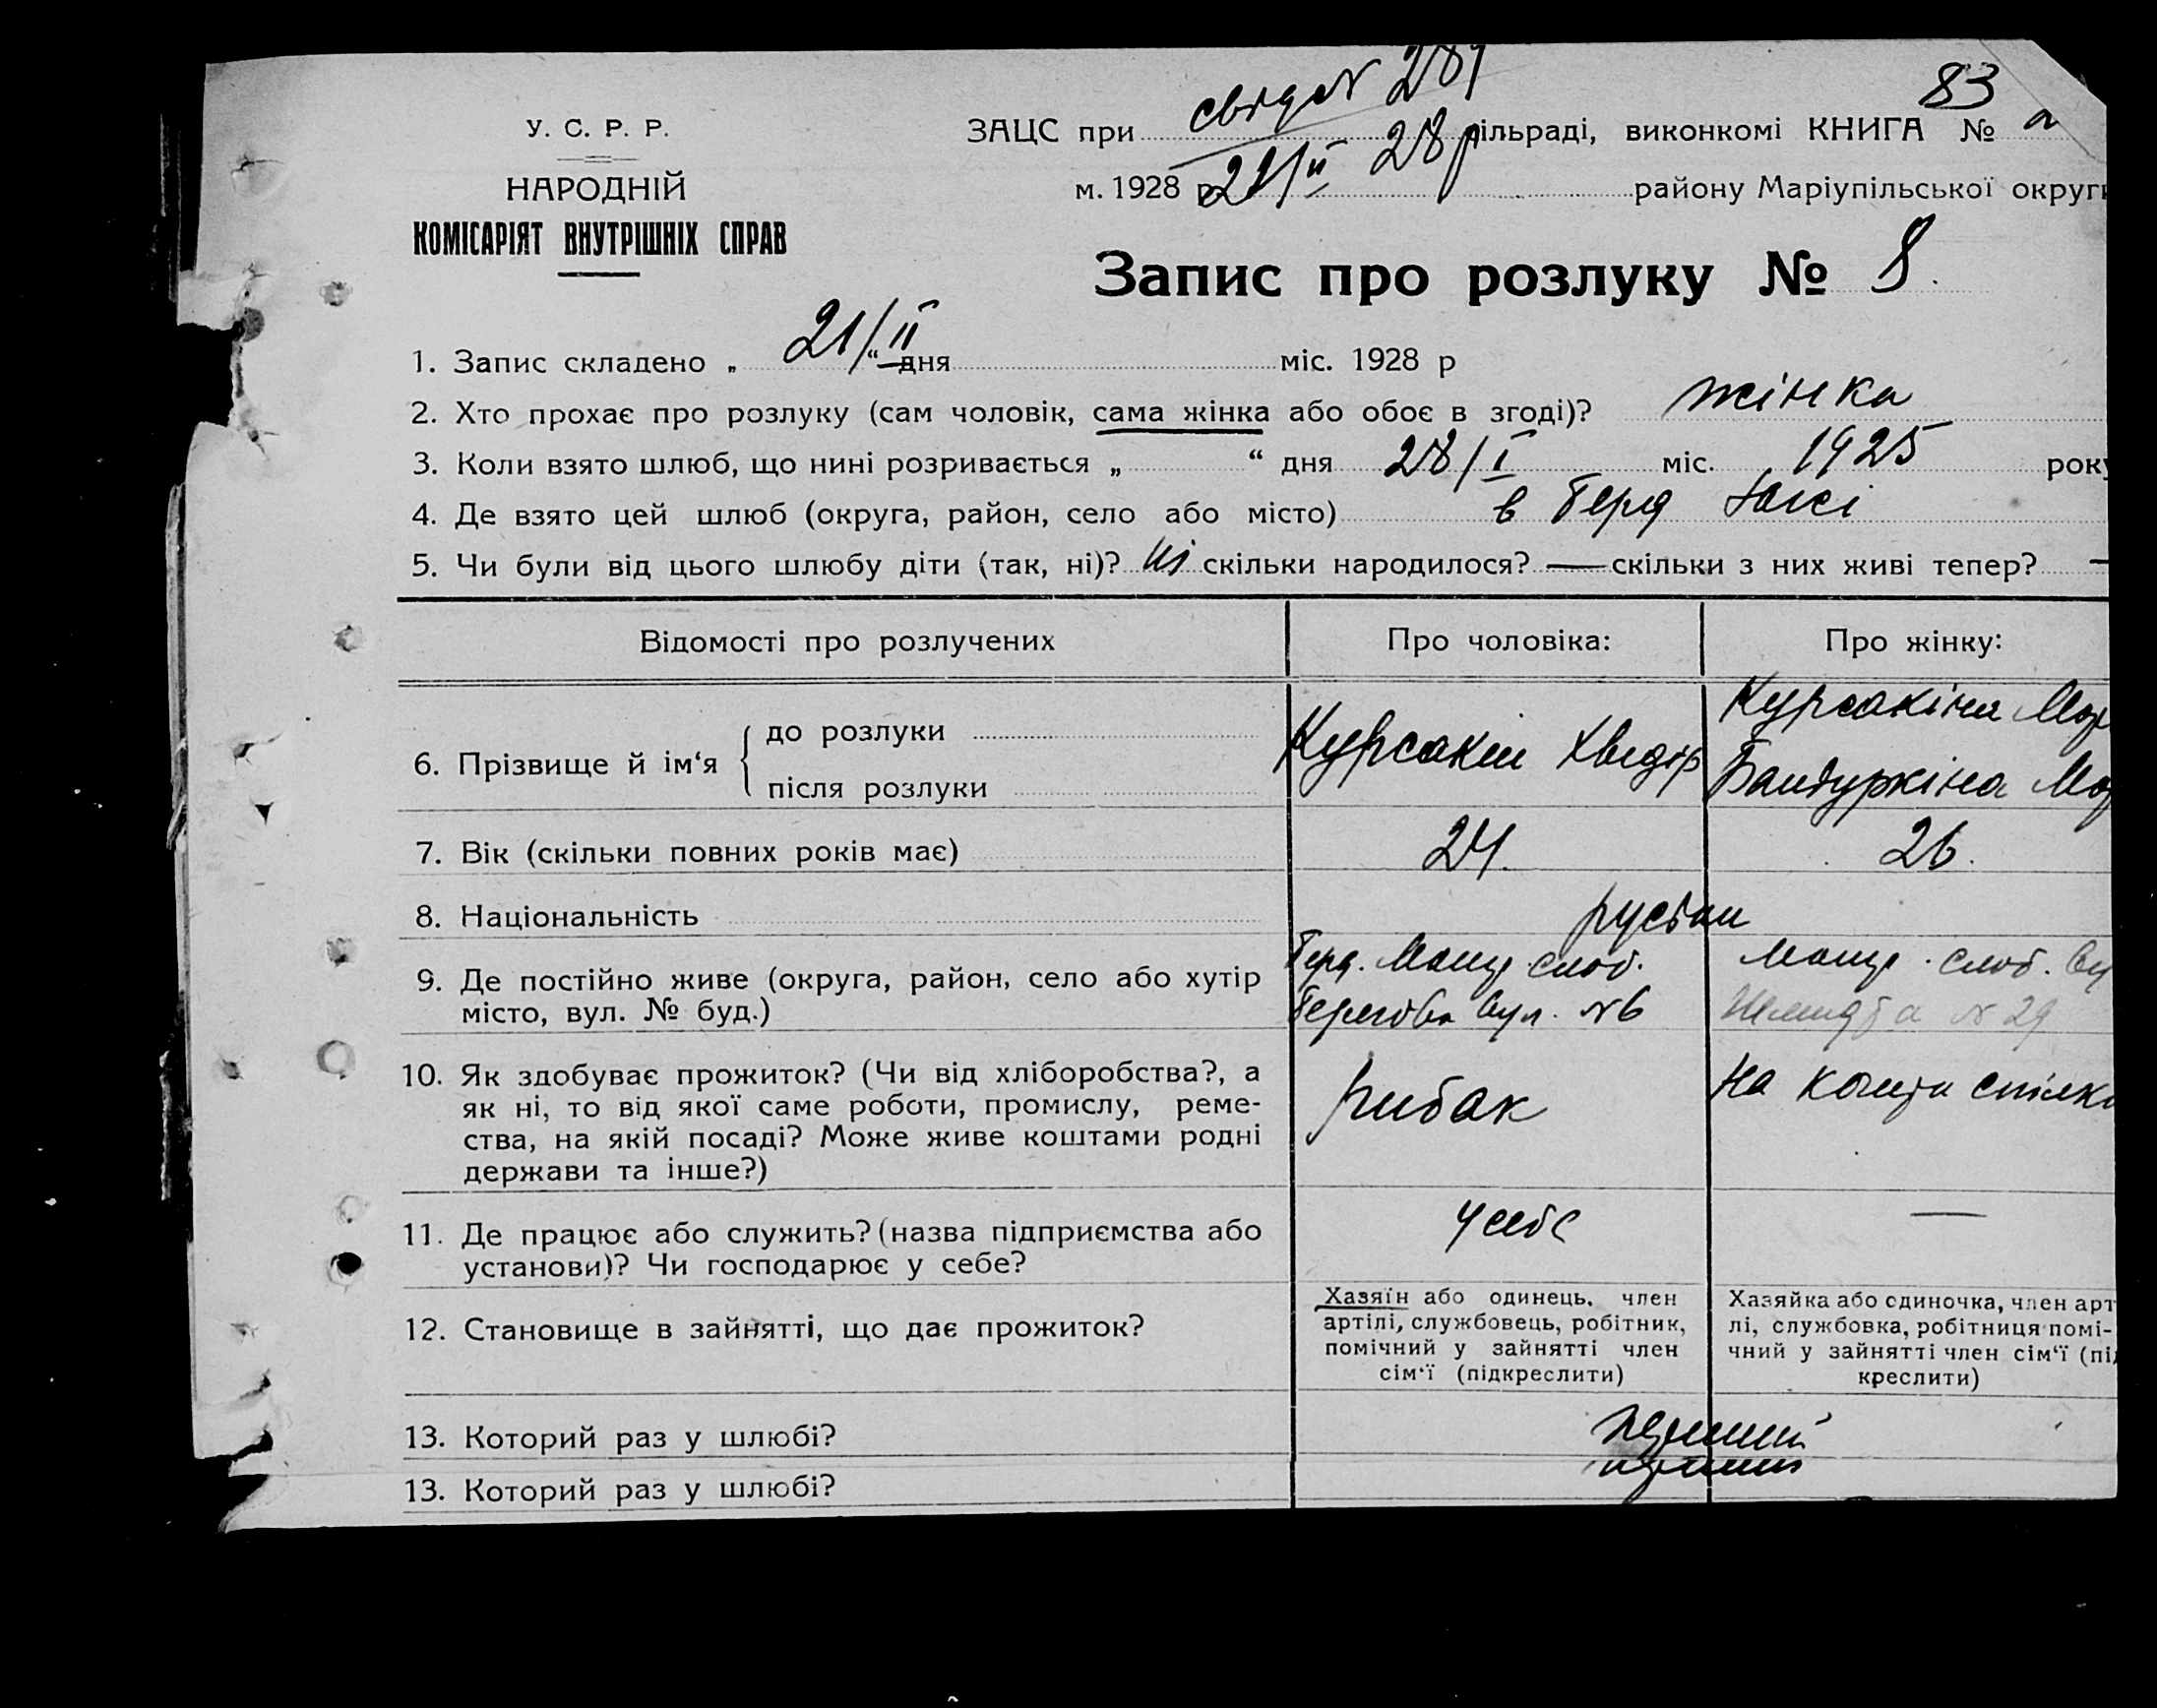 83
свідот 281
У. С. Р. Р.
ЗАЦС при сільраді, виконкомі КНИГА №
НАРОДНІЙ
21/ІІ 28 р
м. 1928 р. району Маріупільської округи
КОМІСАРІЯТ ВНУТРІШНІХ СПРАВ
Запис про розлуку № 8.
1. Запис складено „ 21/ІІ “ дня міс. 1928 р
2. Хто прохає про розлуку (сам чоловік, сама жінка або обоє в згоді)? жінка
3. Коли взято шлюб, що нині розривається „ “ дня 28/І міс. 1925 року
4. Де взято цей шлюб (округа, район, село або місто) в Берд
5. Чи були від цього шлюбу діти (так, ні)? ні скільки народилося? — скільки з них живі тепер? —
Відомості про розлучених
Про чоловіка:
Про жінку:
6. Прізвище й ім‘я
до розлуки
після розлуки
Курсакін Хведір
Курсакіна Мар
Бандуркіна Мар
7. Вік (скільки повних років має)
24.
26.
8. Національність
9. Де постійно живе (округа, район, село або хутір
місто, вул. № буд.)
Берд. слоб.
Берегова вул. №6
слоб. Ву
Шмидта № 29
10. Як здобуває прожиток? (Чи від хліборобства?, а
як ні, то від якої саме роботи, промислу, реме-
ства, на якій посаді? Може живе коштами родні
держави та інше?)
рибак
на кошти спілки
11. Де працює або служить? (назва підприємства або
установи)? Чи господарює у себе?
у себе
—
12. Становище в зайнятті, що дає прожиток?
Хазяїн або одинець, член
артілі, службовець, робітник,
помічний у зайнятті член
сім‘ї (підкреслити)
Хазяйка або одиночка, член арт
лі, службовка, робітниця помі-
чний у зайнятті член сім‘ї (під
креслити)
13. Которий раз у шлюбі?
перший
13. Которий раз у шлюбі?